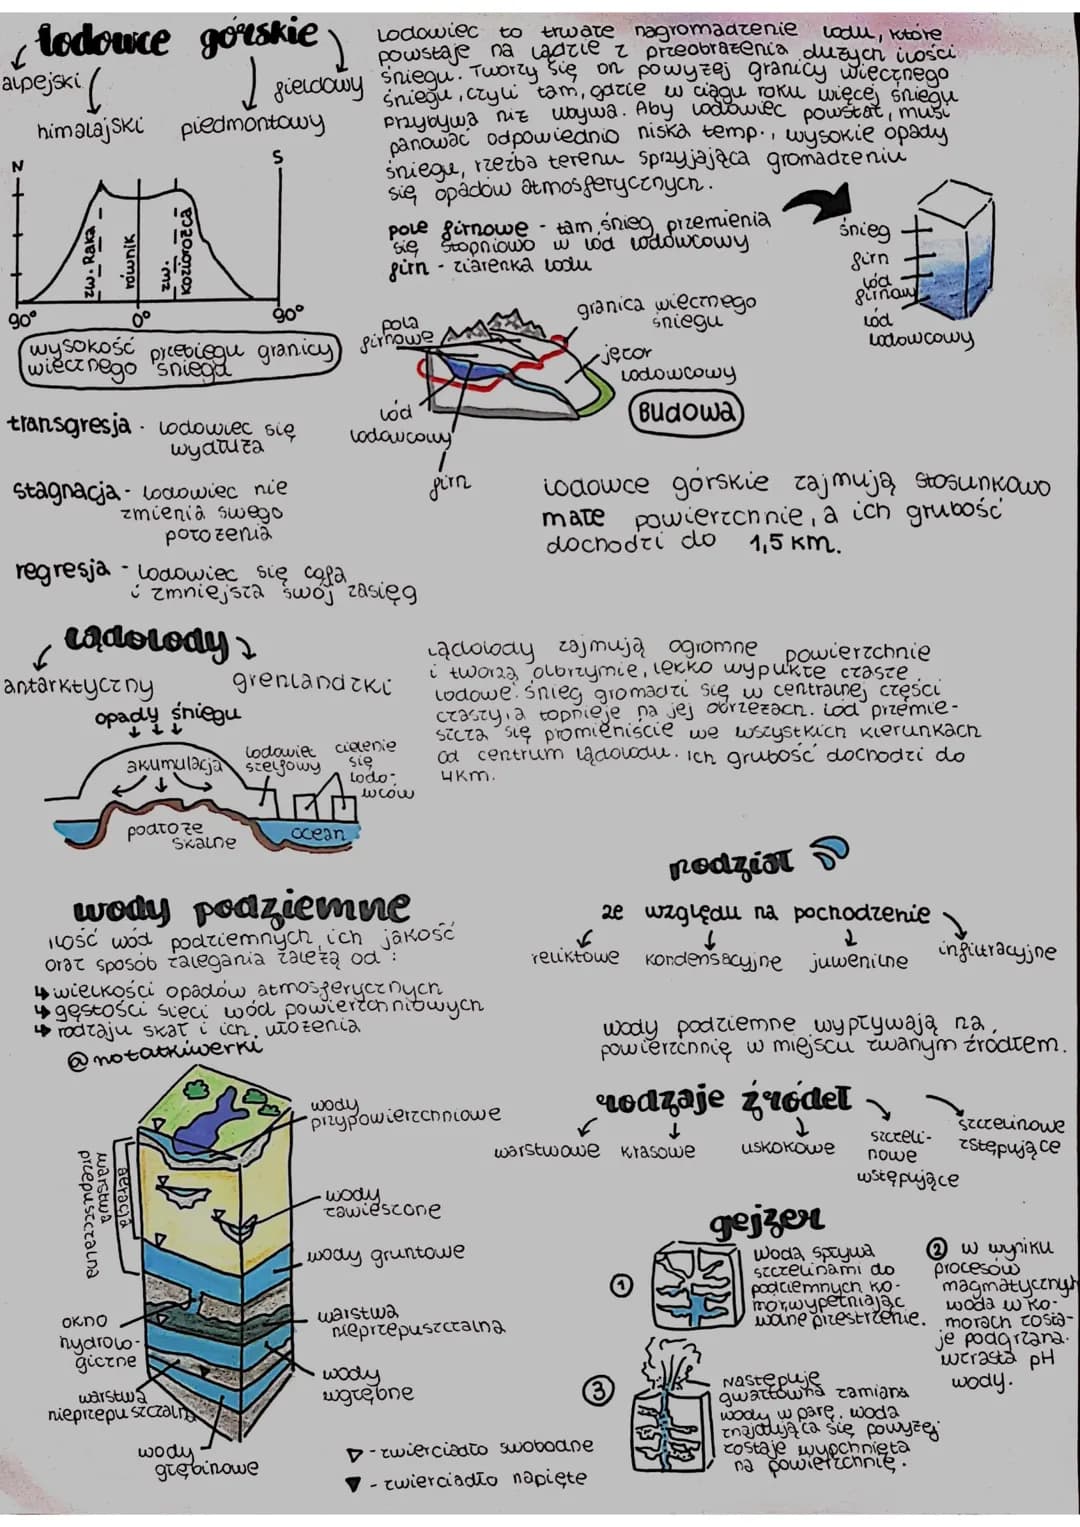 lodowce górskie
alpejski
himalajski
piedmontowy
fieldowy
Lodowiec to trwałe nagromadzenie lodu, które
powstaje na lądzie z przeobrażenia dużych ilości
śniegu. Tworzy się on powyżej granicy wiecznego
śniegu, czyli tam, gdzie w ciągu roku więcej śniegu
przybywa niż ubywa. Aby lodowiec powstał, musi
panować odpowiednio niska temp., wysokie opady
śniegu, rzeźba terenu sprzyjająca gromadzeniu
się opadów atmosferycznych.
N
S
zw. Raka
równik
zw. Koziorożca
90°
0°
90°
wysokość przebiegu granicy
wiecznego śniegu
pole firnowe - tam, śnieg przemienia
się stopniowo w lód lodowcowy
firn - ziarenka lodu
śnieg
firn
lód
firnowy
lód
lodowcowy
pola
firnowe
granica wiecznego
śniegu
jęzor
lodowcowy
lód
lodowcowy
firn
Budowa
transgresja - lodowiec się
wydłuża
stagnacja - lodowiec nie
zmienia swego
położenia
regresja - lodowiec się cofa
i zmniejsza swój zasięg
lodowce górskie zajmują stosunkowo
małe powierzchnie, a ich grubość
dochodzi do 1,5 km.
lądolody
antarktyczny
grenlandzki
opady śniegu
akumulacja
lodowiec
szelfowy
cielenie
się
lodo-
wców
podłoże
skalne
ocean
Lądolody zajmują ogromne powierzchnie
i tworzą olbrzymie, lekko wypukłe czasze
lodowe. Śnieg gromadzi się w centralnej części
czaszy, a topnieje na jej obrzeżach. Lód przemie-
szcza się promieniście we wszystkich kierunkach
od centrum lądolodu. Ich grubość dochodzi do
4km.
wody podziemne
Ilość wód podziemnych, ich jakość
oraz sposób zalegania zależą od :
↳ wielkości opadów atmosferycznych
↳ gęstości sieci wód powierzchniowych
↳ rodzaju skał i ich ułożenia
@notatkiwerki
podział
ze względu na pochodzenie
reliktowe
kondensacyjne
juwenilne
infiltracyjne
wody podziemne wypływają na
powierzchnię w miejscu zwanym źródłem.
rodzaje źródeł
warstwowe
krasowe
uskokowe
szczeli-
nowe
wstępujące
szczelinowe
zstępujące
warstwa
przepuszczalna
aeracja
wody
przypowierzchniowe
wody
zawieszone
wody gruntowe
warstwa
nieprzepuszczalna
wody
wgłębne
okno
hydrolo-
giczne
warstwa
nieprzepuszczalna
wody
głębinowe
▽ - zwierciadło swobodne
▼ - zwierciadło napięte
gejzer
1
Woda spływa
szczelinami do
podziemnych ko-
mór wypełniając
wolne przestrzenie.
2 w wyniku
procesów
magmatycznych
woda w ko-
morach zosta-
je podgrzana.
wzrasta pH
wody.
3
Następuje
gwałtowna zamiana
wody w parę. woda
znajdująca się powyżej
zostaje wypchnięta
na powierzchnię.